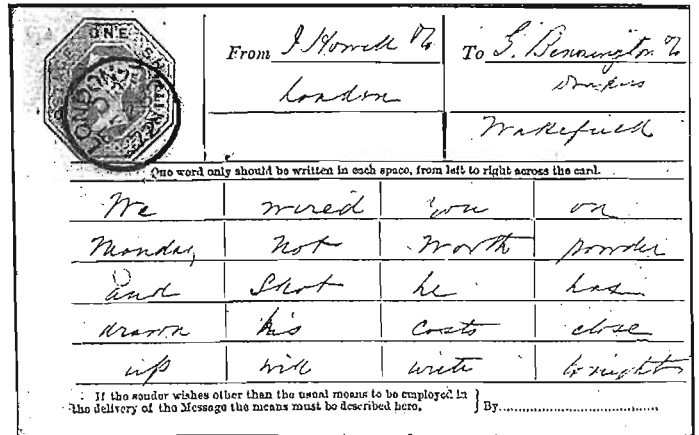 ONE SHILLING
LONDON 72
From J Howell &c To G. Bennington &c
London Drapers
Wakefield
One word only should be written in each space, from left to right across the card.
We wired you on
Monday, not worth powder
and shot he has
drawn his costs close
up will write to night
If the sender wishes other than the usual means to be employed in
the delivery of the Message the means must be described here. By